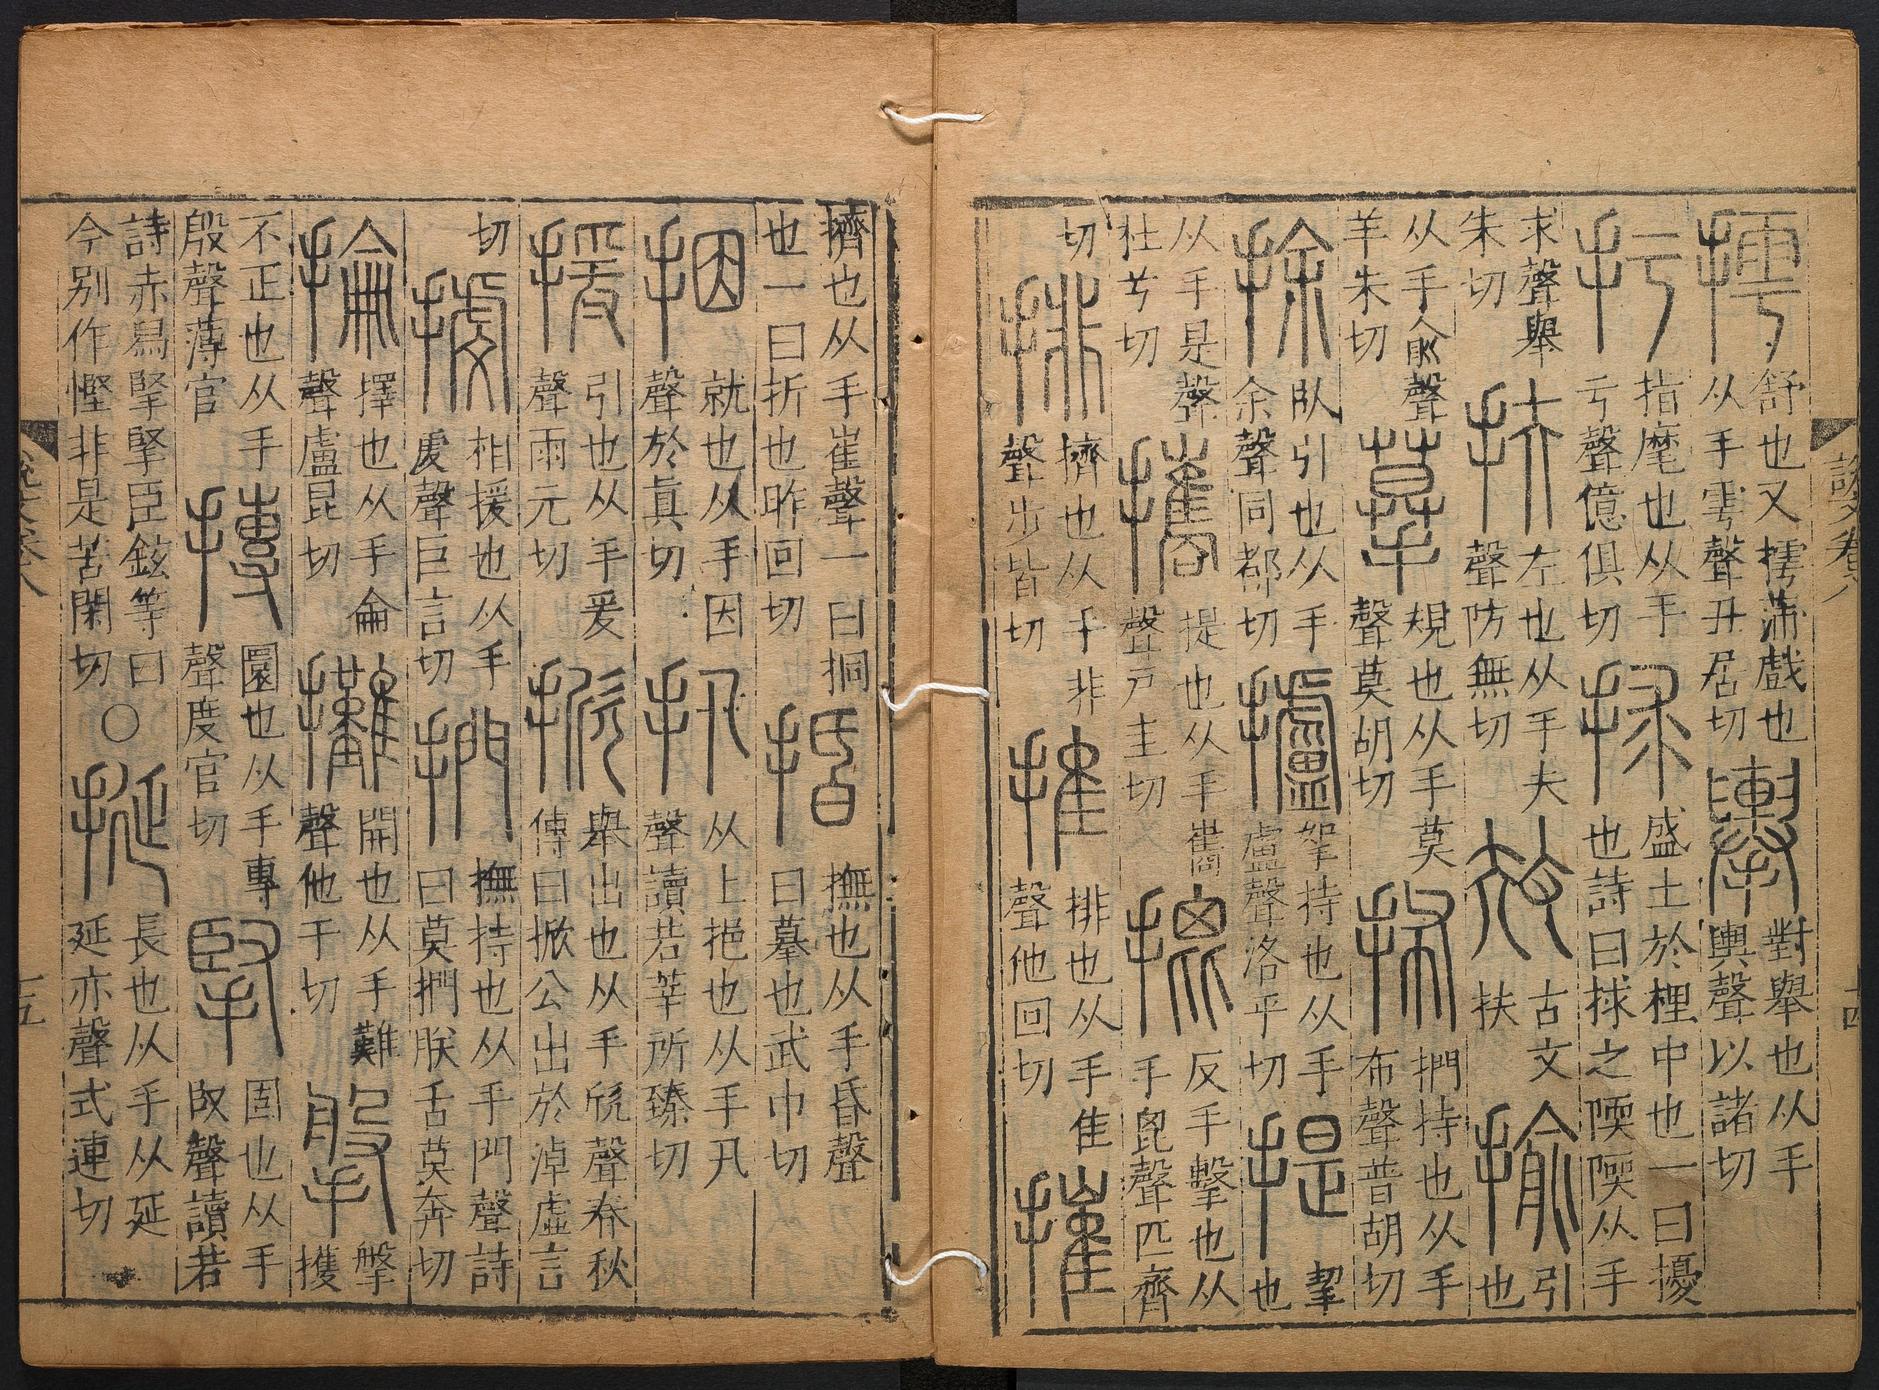 摴舒也又摴蒲戲也从手雩聲丑居切擧對舉也从手輿聲以諸切
扜指麾也从手亏聲億俱切捄盛土於梩中也一曰擾也詩曰捄之陾陾从手
求聲舉朱切扶左也从手夫聲防無切古文扶揄引也
从手俞聲羊朱切摹規也从手莫聲莫胡切抪捫持也从手布聲普胡切
捈臥引也从手余聲同都切攎挐持也从手盧聲洛乎切提挈也
从手是聲杜兮切攜提也从手巂聲戶圭切反手擊也从手毘聲匹齊
切排擠也从手非聲步皆切推排也从手隹聲他回切摧
說文卷八
十四
擠也从手崔聲一曰挏也一曰折也昨回切捪撫也从手昏聲曰摹也武巾切
㧢就也从手因聲於眞切扟从上挹也从手卂聲讀若莘所臻切
援引也从手爰聲雨元切掀舉出也从手欣聲春秋傳曰掀公出於淖虛言
切相援也从手虔聲巨言切捫撫持也从手門聲詩曰莫捫朕舌莫奔切
掄擇也从手侖聲盧昆切攤開也从手難聲他干切搫搫擭
不正也从手般聲薄官摶圜也从手專聲度官切掔固也从手臤聲讀若
詩赤舄掔掔臣鉉等曰今别作慳非是苦閑切○挻長也从手从延延亦聲式連切
說文卷八
十五